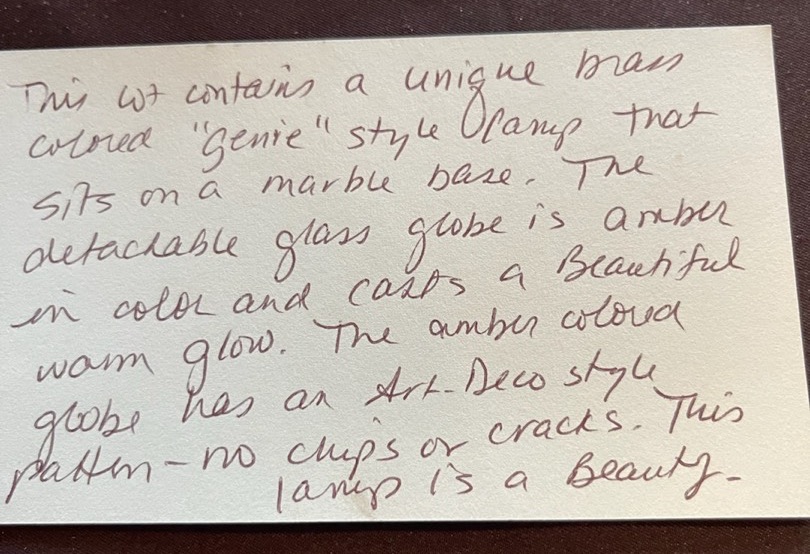 This lot contains a unique brass
colored "genie" style lamp that
sits on a marble base. The
detachable glass globe is amber
in color and casts a Beautiful
warm glow. The amber colored
globe has an Art-Deco style
pattern - no chips or cracks. This
lamp is a Beauty.